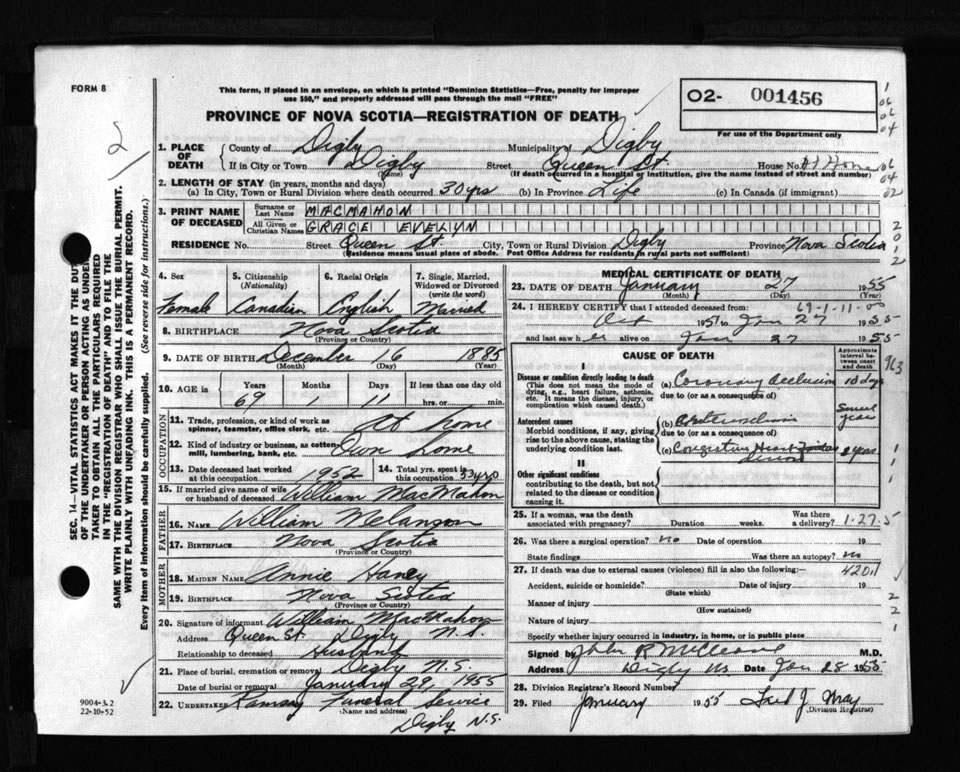 FORM 8
This form, if placed in an envelope, on which is printed "Dominion Statistics—Free, penalty for improper
use $50," and properly addressed will pass through the mail "FREE"
PROVINCE OF NOVA SCOTIA—REGISTRATION OF DEATH
O2- 001456
For use of the Department only
1. PLACE OF DEATH
County of Digby Municipality of Digby
If in City or Town Digby Street Queen St. House No. At Home
(Name) (If death occurred in a hospital or institution, give the name instead of street and number)
2. LENGTH OF STAY (in years, months and days)
(a) In City, Town or Rural Division where death occurred 30 yrs (b) In Province Life (c) In Canada (if immigrant)
3. PRINT NAME OF DECEASED
Surname or Last Name MACMAHON
All Given or Christian Names GRACE EVELYN
RESIDENCE No. Street Queen St. City, Town or Rural Division Digby Province Nova Scotia
(Residence means usual place of abode. Post Office Address for residents in rural parts not sufficient)
4. Sex Female
5. Citizenship (Nationality) Canadian
6. Racial Origin English
7. Single, Married, Widowed or Divorced (write the word) Married
8. BIRTHPLACE Nova Scotia
(Province or Country)
9. DATE OF BIRTH December 16 1885
(Month) (Day) (Year)
10. AGE in Years Months Days If less than one day old
69 1 11 hrs. or min.
OCCUPATION
11. Trade, profession, or kind of work as spinner, teamster, office clerk, etc. At home
12. Kind of industry or business, as cotton-mill, lumbering, bank, etc. Own home
13. Date deceased last worked at this occupation 1952
14. Total yrs. spent in this occupation 33 yrs
15. If married give name of wife or husband of deceased William MacMahon
FATHER
16. NAME William Melanson
17. BIRTHPLACE Nova Scotia
(Province or Country)
MOTHER
18. MAIDEN NAME Annie Haney
19. BIRTHPLACE Nova Scotia
(Province or Country)
20. Signature of informant William MacMahon
Address Queen St. Digby N.S.
Relationship to deceased Husband
21. Place of burial, cremation or removal Digby N.S.
Date of burial or removal January 29, 1955
22. UNDERTAKER Ramsay Funeral Service
(Name and address)
Digby N.S.
MEDICAL CERTIFICATE OF DEATH
23. DATE OF DEATH January 27 1955
(Month) (Day) (Year)
69-1-11-00
24. I HEREBY CERTIFY that I attended deceased from
Oct 1951 to Jan 27 1955
and last saw her alive on Jan 27 1955
CAUSE OF DEATH
Approximate interval between onset and death
I
Disease or condition directly leading to death
(This does not mean the mode of dying, e.g., heart failure, asthenia, etc. It means the disease, injury, or complication which caused death.)
(a) Coronary Occlusion 10 days
due to (or as a consequence of)
Antecedent causes
Morbid conditions, if any, giving rise to the above cause, stating the underlying condition last.
(b) Several years
due to (or as a consequence of)
(c) Congestive Heart years
II
Other significant conditions
contributing to the death, but not related to the disease or condition causing it.
25. If a woman, was the death associated with pregnancy? Duration weeks. Was there a delivery? 1-27-5
26. Was there a surgical operation? no Date of operation 19
State findings Was there an autopsy? no
27. If death was due to external causes (violence) fill in also the following:— 420.1
Accident, suicide or homicide? Date of injury 19
(State which)
Manner of injury
(How sustained)
Nature of injury
Specify whether injury occurred in industry, in home, or in public place
Signed by M.D.
Address Digby NS Date Jan 28 1955
28. Division Registrar's Record Number
29. Filed January 1955 Fred J. May
(Division Registrar)
SEC. 14—VITAL STATISTICS ACT MAKES IT THE DUTY
OF THE UNDERTAKER OR PERSON ACTING AS UNDER-
TAKER TO OBTAIN ALL THE PARTICULARS REQUIRED
IN THE "REGISTRATION OF DEATH" AND TO FILE THE
SAME WITH THE DIVISION REGISTRAR WHO SHALL ISSUE THE BURIAL PERMIT.
WRITE PLAINLY WITH UNFADING INK. THIS IS A PERMANENT RECORD.
Every item of information should be carefully supplied. (See reverse side for instructions.)
9004-3.2
22-10-52